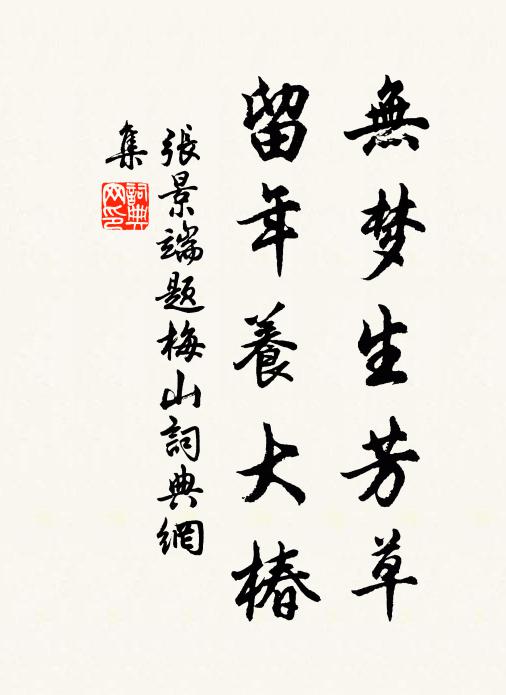 無梦生芳草
留年養大椿
張景端題梅山詞典網
集
詞典
网印